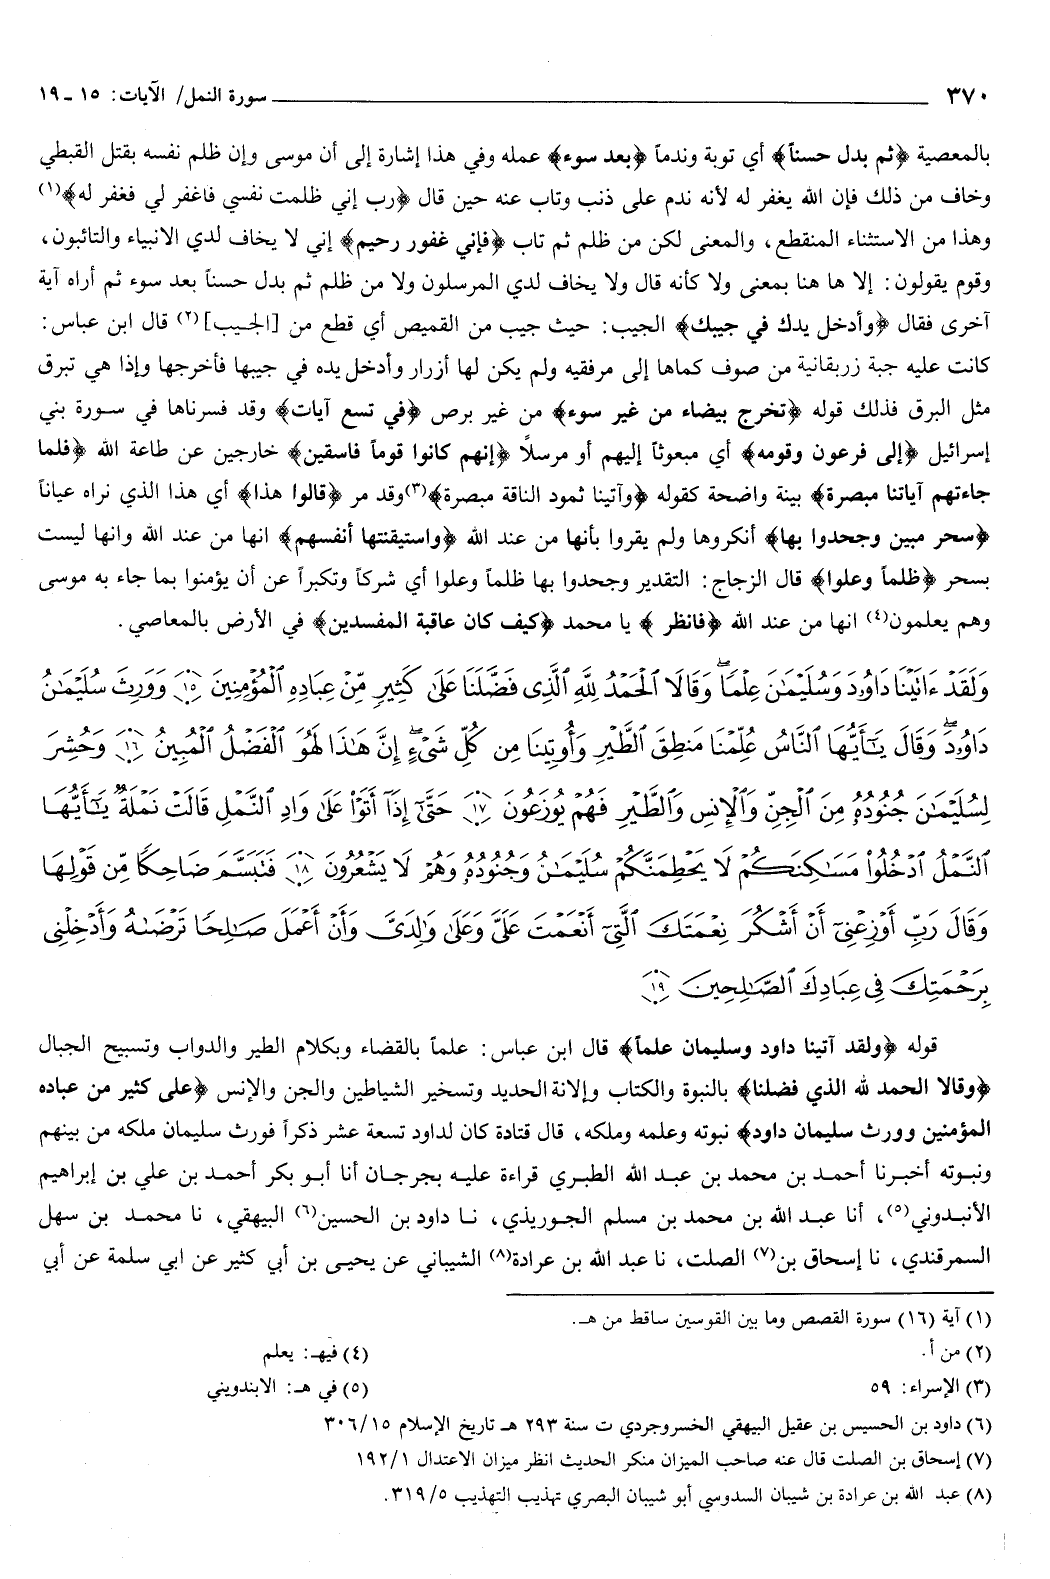 ٣٧٠ سورة النمل/ الآيات: ١٥ ـ ١٩
بالمعصية ﴿ثم بدل حسناً﴾ أي توبة وندماً ﴿بعد سوء﴾ عمله وفي هذا إشارة إلى أن موسى وإن ظلم نفسه بقتل القبطي
وخاف من ذلك فإن الله يغفر له لأنه ندم على ذنب وتاب عنه حين قال ﴿رب إني ظلمت نفسي فاغفر لي فغفر له﴾(١)
وهذا من الاستثناء المنقطع، والمعنى لكن من ظلم ثم تاب ﴿فإني غفور رحيم﴾ إني لا يخاف لدي الانبياء والتائبون،
وقوم يقولون: إلا ها هنا بمعنى ولا كأنه قال ولا يخاف لدي المرسلون ولا من ظلم ثم بدل حسناً بعد سوء ثم أراه آية
آخرى فقال ﴿وأدخل يدك في جيبك﴾ الجيب: حيث جيب من القميص أي قطع من [الجيب](٢) قال ابن عباس:
كانت عليه جبة زربقانية من صوف كماها إلى مرفقيه ولم يكن لها أزرار وأدخل يده في جيبها فأخرجها وإذا هي تبرق
مثل البرق فذلك قوله ﴿تخرج بيضاء من غير سوء﴾ من غير برص ﴿في تسع آيات﴾ وقد فسرناها في سورة بني
إسرائيل ﴿إلى فرعون وقومه﴾ أي مبعوثاً إليهم أو مرسلاً ﴿إنهم كانوا قوماً فاسقين﴾ خارجين عن طاعة الله ﴿فلما
جاءتهم آياتنا مبصرة﴾ بينة واضحة كقوله ﴿وآتينا ثمود الناقة مبصرة﴾(٣)وقد مر ﴿قالوا هذا﴾ أي هذا الذي نراه عياناً
﴿سحر مبين وجحدوا بها﴾ أنكروها ولم يقروا بأنها من عند الله ﴿واستيقنتها أنفسهم﴾ انها من عند الله وانها ليست
بسحر ﴿ظلماً وعلوا﴾ قال الزجاج: التقدير وجحدوا بها ظلماً وعلوا أي شركاً وتكبراً عن أن يؤمنوا بما جاء به موسى
وهم يعلمون(٤) انها من عند الله ﴿فانظر﴾ يا محمد ﴿كيف كان عاقبة المفسدين﴾ في الأرض بالمعاصي.
وَلَقَدْ ءَاتَيْنَا دَاوُۥدَ وَسُلَيْمَٰنَ عِلْمًاۖ وَقَالَا ٱلْحَمْدُ لِلَّهِ ٱلَّذِى فَضَّلَنَا عَلَىٰ كَثِيرٍ مِّنْ عِبَادِهِ ٱلْمُؤْمِنِينَ ۝١٥ وَوَرِثَ سُلَيْمَٰنُ
دَاوُۥدَۖ وَقَالَ يَٰٓأَيُّهَا ٱلنَّاسُ عُلِّمْنَا مَنطِقَ ٱلطَّيْرِ وَأُوتِينَا مِن كُلِّ شَىْءٍۖ إِنَّ هَٰذَا لَهُوَ ٱلْفَضْلُ ٱلْمُبِينُ ۝١٦ وَحُشِرَ
لِسُلَيْمَٰنَ جُنُودُهُۥ مِنَ ٱلْجِنِّ وَٱلْإِنسِ وَٱلطَّيْرِ فَهُمْ يُوزَعُونَ ۝١٧ حَتَّىٰٓ إِذَآ أَتَوْا۟ عَلَىٰ وَادِ ٱلنَّمْلِ قَالَتْ نَمْلَةٌ يَٰٓأَيُّهَا
ٱلنَّمْلُ ٱدْخُلُوا۟ مَسَٰكِنَكُمْ لَا يَحْطِمَنَّكُمْ سُلَيْمَٰنُ وَجُنُودُهُۥ وَهُمْ لَا يَشْعُرُونَ ۝١٨ فَتَبَسَّمَ ضَاحِكًا مِّن قَوْلِهَا
وَقَالَ رَبِّ أَوْزِعْنِىٓ أَنْ أَشْكُرَ نِعْمَتَكَ ٱلَّتِىٓ أَنْعَمْتَ عَلَىَّ وَعَلَىٰ وَٰلِدَىَّ وَأَنْ أَعْمَلَ صَٰلِحًا تَرْضَىٰهُ وَأَدْخِلْنِى
بِرَحْمَتِكَ فِى عِبَادِكَ ٱلصَّٰلِحِينَ ۝١٩
قوله ﴿ولقد آتينا داود وسليمان علماً﴾ قال ابن عباس: علماً بالقضاء وبكلام الطير والدواب وتسبيح الجبال
﴿وقالا الحمد لله الذي فضلنا﴾ بالنبوة والكتاب وإلانة الحديد وتسخير الشياطين والجن والإنس ﴿على كثير من عباده
المؤمنين وورث سليمان داود﴾ نبوته وعلمه وملكه، قال قتادة كان لداود تسعة عشر ذكراً فورث سليمان ملكه من بينهم
ونبوته أخبرنا أحمد بن محمد بن عبد الله الطبري قراءة عليه بجرجان أنا أبو بكر أحمد بن علي بن إبراهيم
الأنبدوني(٥)، أنا عبد الله بن محمد بن مسلم الجوريذي، نا داود بن الحسين(٦) البيهقي، نا محمد بن سهل
السمرقندي، نا إسحاق بن(٧) الصلت، نا عبد الله بن عرادة(٨) الشيباني عن يحيى بن أبي كثير عن ابي سلمة عن أبي
(١) آية (١٦) سورة القصص وما بين القوسين ساقط من هـ.
(٢) من أ. (٤) فيهـ: يعلم
(٣) الإسراء: ٥٩ (٥) في هـ: الابندويني
(٦) داود بن الحسيس بن عقيل البيهقي الخسروجردي ت سنة ٢٩٣ هـ تاريخ الإسلام ٣٠٦/١٥
(٧) إسحاق بن الصلت قال عنه صاحب الميزان منكر الحديث انظر ميزان الاعتدال ١٩٢/١
(٨) عبد الله بن عرادة بن شيبان السدوسي أبو شيبان البصري تهذيب التهذيب ٣١٩/٥.